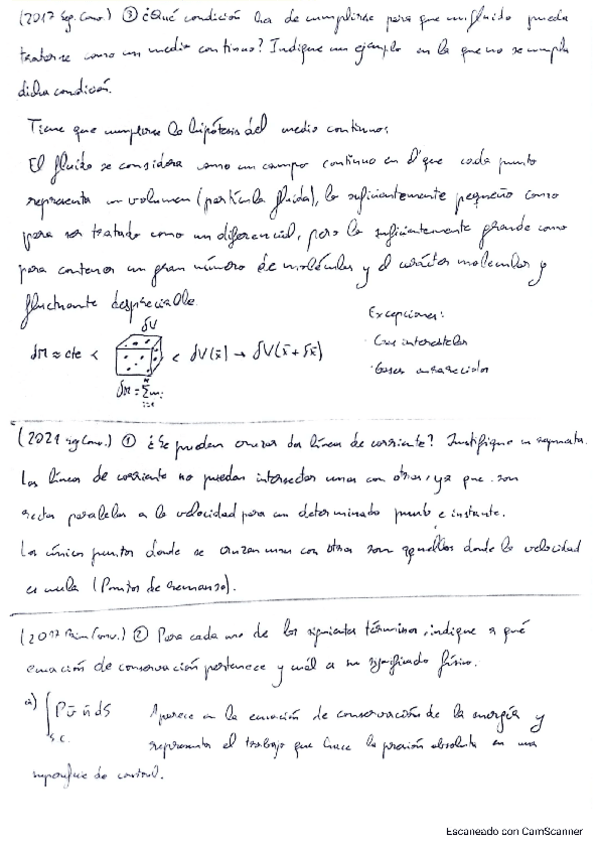 (2017 Sg. Conv.) ③ ¿Qué condición ha de cumplirse para que un fluido pueda
tratarse como un medio continuo? Indique un ejemplo en la que no se cumpla
dicha condición.
Tiene que cumplirse la hipótesis del medio continuo:
El fluido se considera como un campo continuo en el que cada punto
representa un volumen (partícula fluida), lo suficientemente pequeño como
para ser tratado como un diferencial, pero lo suficientemente grande como
para contener un gran número de moléculas y el carácter molecular y
fluctuante despreciable.
δV
Excepciones:
δM ≈ cte < < δV(x̄) → δV(x̄ + δx̄)
· Gas interestelar
· Gases enrarecidos
(2021 Sg Conv.) ① ¿Se pueden cruzar dos líneas de corriente? Justifique su respuesta.
Las líneas de corriente no pueden intersectar unas con otras, ya que son
rectas paralelas a la velocidad para un determinado punto e instante.
Los únicos puntos donde se cruzan unas con otras son aquellos donde la velocidad
es nula (Puntos de remanso).
(2017 Prim Conv.) ② Para cada uno de los siguientes términos, indique a qué
ecuación de conservación pertenece y cuál es su significado físico.
a) ∫ P v̄ n̄ dS Aparece en la ecuación de conservación de la energía y
s.c. representa el trabajo que hace la presión absoluta en una
superficie de control.
Escaneado con CamScanner